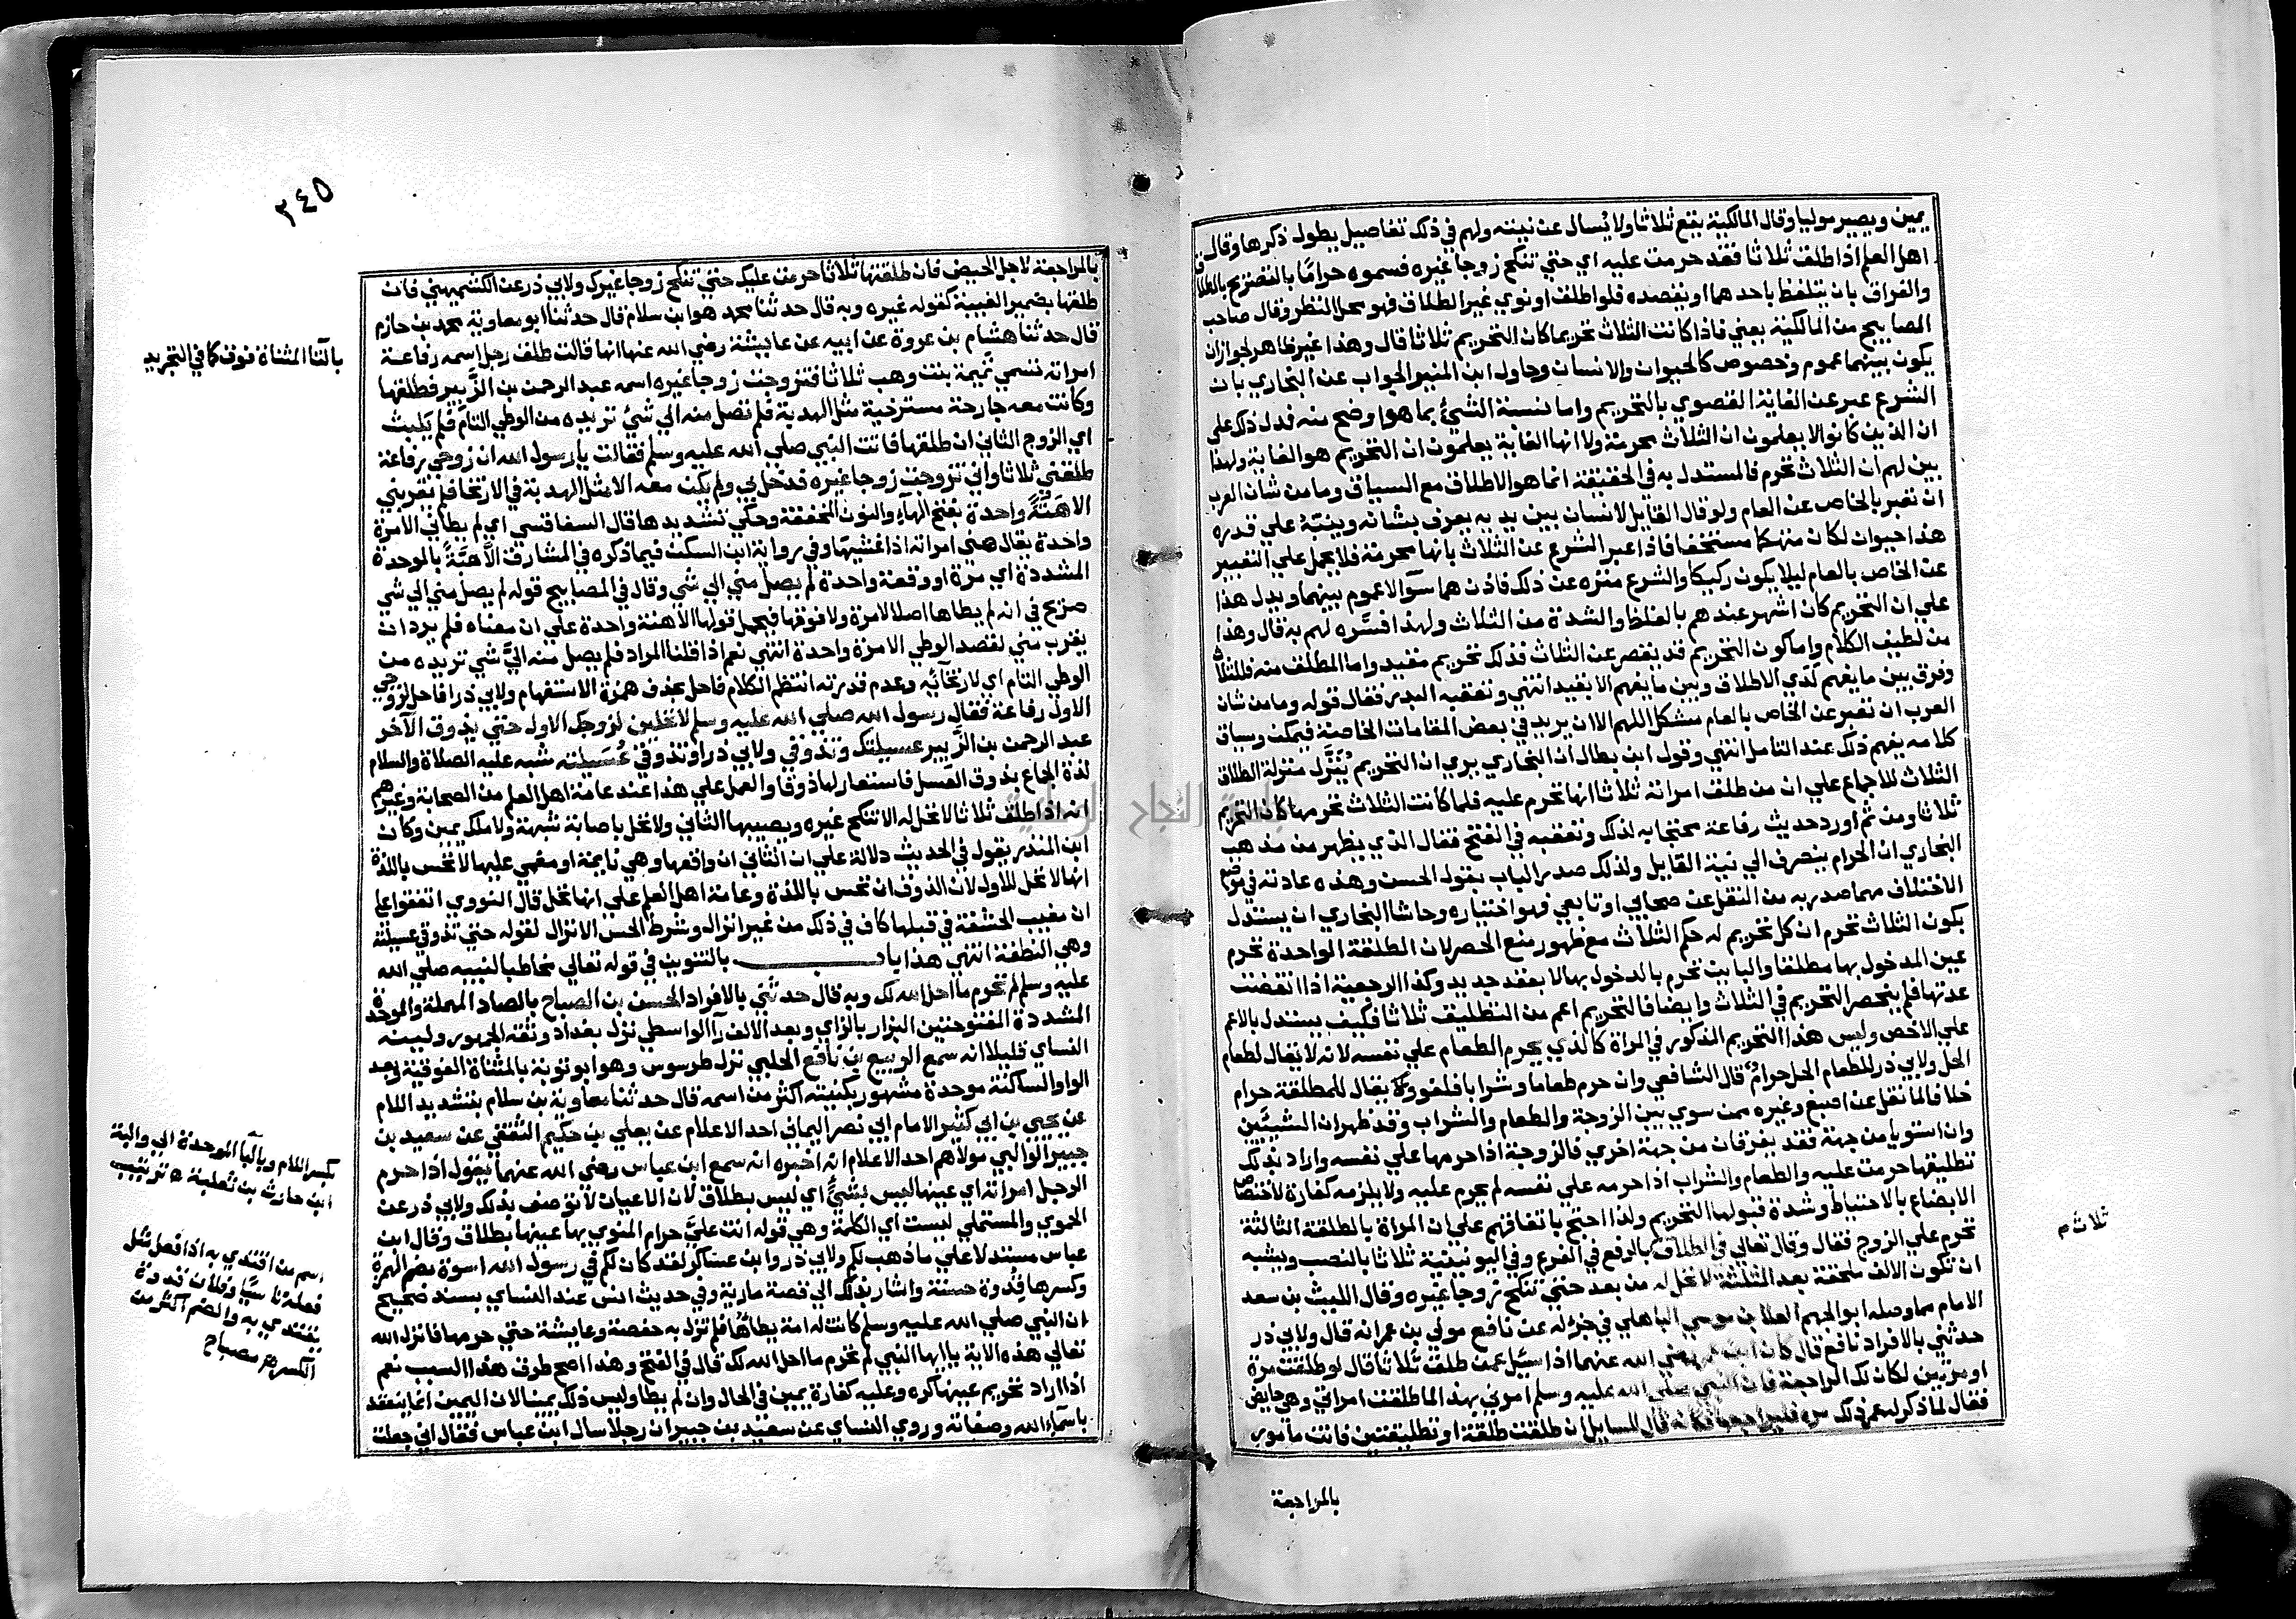 يمين ويصير موليا وقال المالكية يقع ثلاثا ولا يسال عن نيته ولهم في ذلك تفاصيل يطول ذكرها وقال
اهل العلم اذا طلق ثلاثا فقد حرمت عليه اي حتي تنكح زوجا غيره فسموه حراما بالتصريح بالطلاق
والفراق بان يتلفظ باحدهما او يقصده فلو اطلق او نوي غير الطلاق فهو محل النظر وقال صاحب
المصابيح من المالكية يعني فاذا كانت الثلاث تحريما كان التحريم ثلاثا قال وهذا غير ظاهر لجواز ان
يكون بينهما عموم وخصوص كالحيوان والانسان وحاول ابن المنير الجواب عن البخاري بان
الشرع عبر عن الغاية القصوي بالتحريم وانما تسمية الشيء بما هو اوضح منه فدل ذلك علي
ان الذين كانوا لا يعلمون ان الثلاث محرمة ولا انها الغاية يعلمون ان التحريم هو الغاية ولهذا
بين لهم ان الثلاث تحرم فالمستدل به في الحقيقة انما هو الاطلاق مع السياق وما من شان العرب
ان تعبر بالخاص عن العام ولو قال القايل لانسان بين يديه يعرف بشانه وينبه علي قدره
هذا حيوان لكان متهكما مستخفا فاذا عبر الشرع عن الثلاث بانها محرمة فلا يحمل علي التعبير
عن الخاص بالعام ليلا يكون ركيكا والشرع منزه عن ذلك فاذن هما سوآ لا عموم بينهما ويدل هذا
علي ان التحريم كان اشهر عندهم بالغلظ والشدة من الثلاث ولهذا فسره لهم به قال وهذا
من لطيف الكلام واما كون التحريم قد يقصر عن الثلاث فذلك تحريم مقيد واما المطلق منه فللثلاث
وفرق بين ما يفهم لدي الاطلاق وبين ما يفهم الا بقيد انتهي وتعقبه البدر فقال قوله وما من شان
العرب ان تعبر عن الخاص بالعام مشكل اللهم الا ان يريد في بعض المقامات الخاصة فيمكن وسياق
كلامه يفهم ذلك عند التامل انتهي وقول ابن بطال ان البخاري يري ان التحريم يتنزل منزلة الطلاق
الثلاث للاجماع علي ان من طلق امراته ثلاثا انها تحرم عليه فلما كانت الثلاث تحرمها كان التحريم
ثلاثا ومن ثم اورد حديث رفاعة محتجا به لذلك وتعقبه في الفتح فقال الذي يظهر من مذهب
البخاري ان الحرام ينصرف الي نية القايل ولذلك صدر الباب بقول الحسن وهذه عادته في موضع
الاختلاف مهما صدر به من النقل عن صحابي او تابعي فهو اختياره وحاشا البخاري ان يستدل
بكون الثلاث تحرم ان كل تحريم له حكم الثلاث مع ظهور منع الحصر لان الطلقة الواحدة تحرم
غير المدخول بها مطلقا والباين تحرم بالدخول بها الا بعقد جديد وكذا الرجعية اذا انقضت
عدتها فلم ينحصر التحريم في الثلاث وايضا فالتحريم اعم من التطليق ثلاثا فكيف يستدل بالاعم
علي الاخص وليس هذا التحريم المذكور في المراة كالذي يحرم الطعام علي نفسه لانه لا يقال لطعام
الحل ولابي ذر للطعام الحل حرام قال الشافعي وان حرم طعاما وشرابا فلغو ويقال للمطلقة حرام
خلافا لما نقل عن اصبغ وغيره ممن سوي بين الزوجة والطعام والشراب وقد ظهر ان الشيئين
وان استويا من جهة فقد يفترقان من جهة اخري فالزوجة اذا حرمها علي نفسه واراد بذلك
تطليقها حرمت عليه والطعام والشراب اذا حرمه علي نفسه لم يحرم عليه ولا يلزمه كفارة لاختصاص
الابضاع بالاحتياط وشدة قبولها التحريم ولذا احتج باتفاقهم علي ان المراة بالطلقة الثالثة
تحرم علي الزوج فقال وقال تعالي في الطلاق بالرفع في الفرع وفي اليونينية ثلاثا بالنصب ويشبه
ان تكون الالف ملحقة بعد المثلثة لا تحل له من بعد حتي تنكح زوجا غيره وقال الليث بن سعد
الامام مما وصله ابو الجهم العلا بن موسي الباهلي في جزئه عن نافع مولي بن عمر انه قال ولابي ذر
حدثني بالافراد نافع قال كان ابن عمر رضي الله عنهما اذا سئل عمن طلق ثلاثا قال لو طلقت مرة
او مرتين لكان لك الراجعة فان النبي صلي الله عليه وسلم امرني بهذا لما طلقت امراتي وهي حايض
فقال لما ذكر له عمر ذلك مره فليراجعها فكانه قال للسايل ان طلقت طلقة او تطليقتين فانت مامور
ثلاث م
بالمراجعة
٢٤٥
بالمراجعة لاجل الحيض فان طلقتها ثلاثا حرمت عليك حتي تنكح زوجا غيرك ولابي ذر عن الكشميهني فان
طلقها بضمير الغيبة كقوله غيره وبه قال حدثنا محمد هو ابن سلام قال حدثنا ابو معاوية محمد بن حازم
قال حدثنا هشام بن عروة عن ابيه عن عايشة رضي الله عنها انها قالت طلق رجل اسمه رفاعة
امراته تسمي تميمة بنت وهب ثلاثا فتزوجت زوجا غيره اسمه عبد الرحمن بن الزبير فطلقها
وكانت معه جارحة مسترخية مثل الهدبة فلم تصل منه الي شيء تريده من الوطي التام فلم يلبث
اي الزوج الثاني ان طلقها فاتت النبي صلي الله عليه وسلم فقالت يا رسول الله ان زوجي رفاعة
طلقني ثلاثا واني تزوجت زوجا غيره فدخل بي ولم يكن معه الا مثل الهدبة في الارتخا فلم يقربني
الا هنة واحدة بفتح الهآء والنون المخففة وحكي تشديدها قال السفاقسي اي لم يطاني الا مرة
واحدة يقال هني امراته اذا غشيها وفي رواية ابن السكن فيما ذكره في المشارق الا هبة بالموحدة
المشددة اي مرة او وقعة واحدة لم يصل مني الي شي وقال في المصابيح قوله لم يصل مني الي شي
صريح في انه لم يطاها اصلا لا مرة ولا فوقها فيحمل قولها الا هنة واحدة علي ان معناه فلم يرد ان
يقرب مني لقصد الوطي الا مرة واحدة انتهي نعم اذا قلنا المراد فلم يصل منه الي شي تريده من
الوطي التام اي لارتخائه وعدم قدرته انتظم الكلام فاحل بحذف همزة الاستفهام ولابي ذر افاحل لزوجي
الاول رفاعة فقال رسول الله صلي الله عليه وسلم لا تحلين لزوجك الاول حتي يذوق الآخر
عبد الرحمن بن الزبير عسيلتك وتذوقي ولابي ذر او تذوقي عسيلته شبه عليه الصلاة والسلام
لذة الجماع بذوق العسل فاستعار لها ذوقا والعمل علي هذا عند عامة اهل العلم من الصحابة وغيرهم
انه اذا طلق ثلاثا لا تحل له الا تنكح غيره ويصيبها الثاني ولا تحل باصابة شبهة ولا ملك يمين وكان
ابن المنذر يقول في الحديث دلالة علي ان الثاني ان واقعها وهي نايمة او مغمي عليها لا تحس باللذة
انها لا تحل للاول لان الذوق ان تحس باللذة وعامة اهل العلم علي انها تحل قال النووي اتفقوا علي
ان مغيب الحشفة في قبلها كاف في ذلك من غير انزال وشرط الحسن الانزال لقوله حتي تذوقي عسيلته
وهي النطفة انتهي هذا باب بالتنوين في قوله تعالي مخاطبا لنبيه صلي الله
عليه وسلم لم تحرم ما احل الله لك وبه قال حدثني بالافراد الحسن بن الصباح بالصاد المهملة والموحدة
المشددة المفتوحتين البزار بالزاي وبعد الالف رآ الواسطي نزل بغداد وثقه الجمهور ولينه
النساي قليلا انه سمع الربيع بن نافع الحلبي نزل طرسوس وهو ابو توبة بالمثناة الفوقية وبعد
الواو الساكنة موحدة مشهور بكنيته اكثر من اسمه قال حدثنا معاوية بن سلام بتشديد اللام
عن يحيي بن ابي كثير الامام ابي نصر اليماني احد الاعلام عن يعلي بن حكيم الثقفي عن سعيد بن
جبير الوالبي مولاهم احد الاعلام انه اخبره انه سمع ابن عباس رضي الله عنهما يقول اذا حرم
الرجل امراته اي عينها ليس بشيء اي ليس بطلاق لان الاعيان لا توصف بذلك ولابي ذر عن
الحموي والمستملي ليست اي الكلمة وهي قوله انت علي حرام المنوي بها عينها بطلاق وقال ابن
عباس مستدلا علي ما ذهب لكم ولابي ذر وابن عساكر لقد كان لكم في رسول الله اسوة بضم الهمزة
وكسرها قدوة حسنة واشار بذلك الي قصة مارية وفي حديث انس عند النساي بسند صحيح
ان النبي صلي الله عليه وسلم كانت له امة يطاها فلم تزل به حفصة وعايشة حتي حرمها فانزل الله
تعالي هذه الاية يا ايها النبي لم تحرم ما احل الله لك قال في الفتح وهذا اصح طرق هذا السبب نعم
اذا اراد تحريم عينها كره وعليه كفارة يمين في الحال وان لم يطا وليس ذلك يمينا لان اليمين انما ينعقد
باسماء الله وصفاته وروي النساي عن سعيد بن جبير ان رجلا سال ابن عباس فقال اني جعلت
بالتا المثناة فوق كما في التجريد
بكسر اللام وبالبآ الموحدة الي والبة
ابن حارث بن ثعلبة ه ترتيب
اسم من اقتدي به اذا فعل مثل
فعله تاسيا وفلان قدوة
يقتدي به والضم اكثر من
الكسر ه مصباح
جامعة النجاح الوطنية